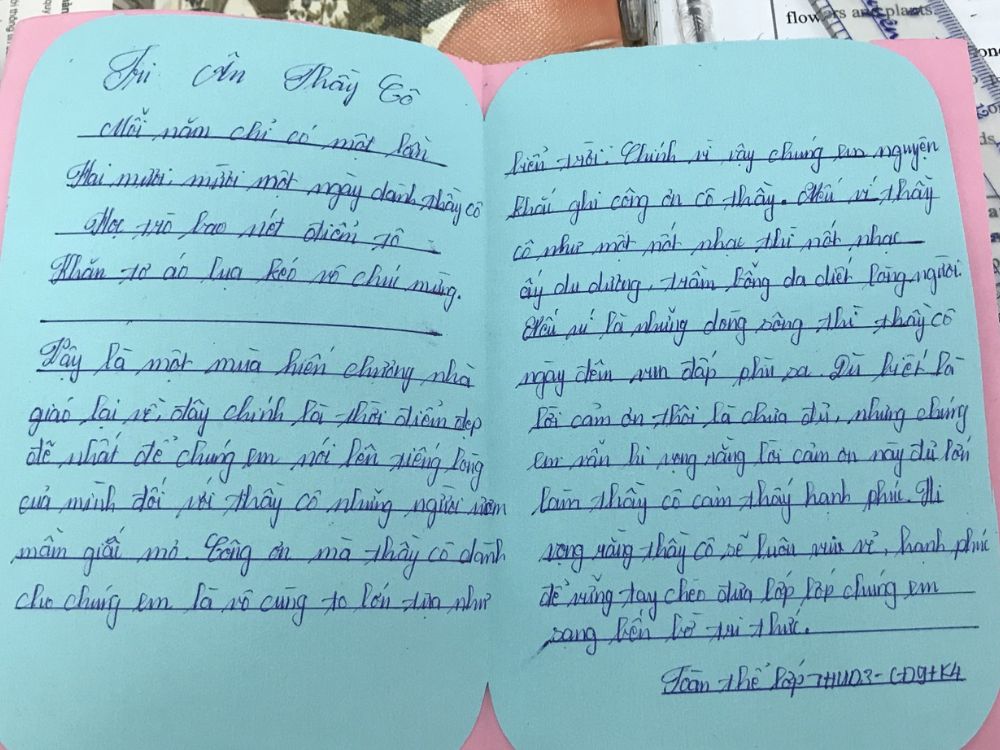 flowers and plants.
Tri Ân Thầy Cô
Mỗi năm chỉ có một lần
Hai mươi, mười một ngày dành thầy cô
Học trò bao nét điểm tô
Khăn tơ áo lụa kéo vô chúc mừng.
Đây là một mùa hiến chương nhà
giáo lại về, đây chính là thời điểm đẹp
đẽ nhất để chúng em nói lên tiếng lòng
của mình đối với thầy cô những người ươm
mầm giấc mơ. Công ơn mà thầy cô dành
cho chúng em là vô cùng to lớn tựa như
biển trời. Chính vì vậy chúng em nguyện
khắc ghi công ơn cô thầy. Nếu ví thầy
cô như một nốt nhạc thì nốt nhạc
ấy du dương, trầm bổng da diết lòng người.
Nếu ví là những dòng sông thì thầy cô
ngày đêm vun đắp phù sa. Dù biết là
lời cảm ơn thôi là chưa đủ, nhưng chúng
em vẫn hi vọng rằng lời cảm ơn này đủ lớn
làm thầy cô cảm thấy hạnh phúc. Hi
vọng rằng thầy cô sẽ luôn vui vẻ, hạnh phúc
để vững tay chèo đưa lớp lớp chúng em
sang bến bờ tri thức.
Toàn thể lớp THUD3-CĐ9+K4